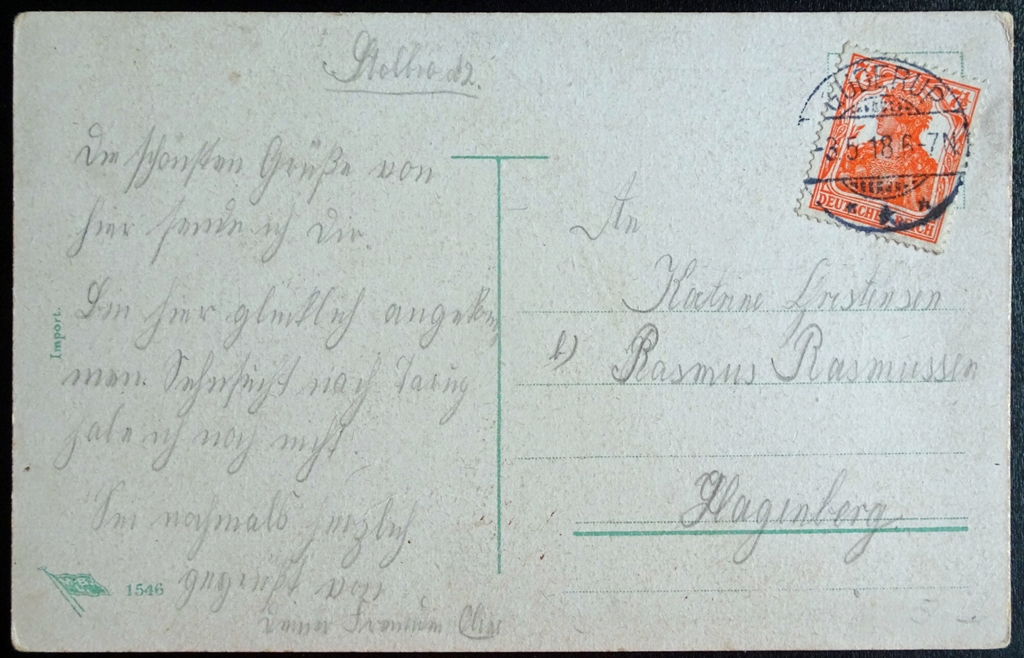 Die schönsten Grüße von
hier sende ich Dir.
Bin hier glücklich angekom
men. Sehnsucht nach
habe ich noch nicht.
Sei nochmals herzlich
gegrüßt von
Deiner Freundin
Import.
1546
3.5.18.6-7N
DEUTSCHES REICH
An
Katrine Cristensen
b) Rasmus Rasmussen
Hagenberg.